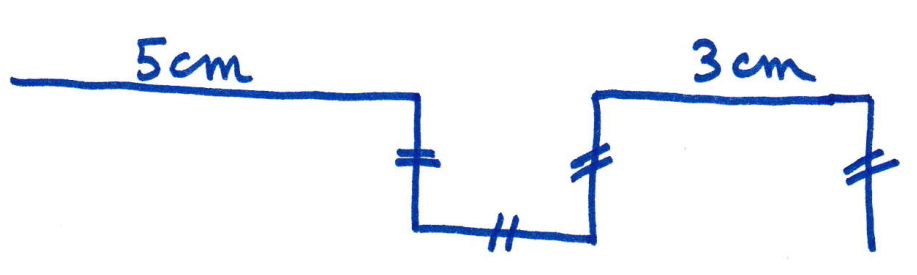 5cm
3cm